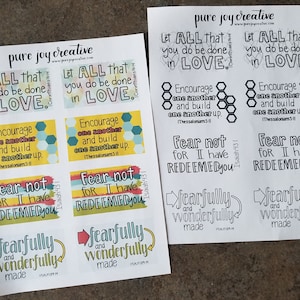 pure joy creative
www.purejoycreative.com
Let ALL that
you do be done
in LOVE.
Let ALL that
you do be done
in LOVE.
Encourage
one another
and build
one another up.
1 Thessalonians 5:11
Encourage
one another
and build
one another up.
1 Thessalonians 5:11
Fear not
FOR I have
REDEEMED you
Fear not
FOR I have
REDEEMED you
fearfully
and wonderfully
made
fearfully
and wonderfully
made
pure joy creative
www.purejoycreative.com
Let ALL that
you do be done
in LOVE.
Let ALL
you do be
in LO
Encourage
one another
and build
one another up.
1 Thessalonians 5:11
Encour
one an
and b
one ano
Fear not
FOR I have
REDEEMED you
Fear
FOR I
REDEEM
fearfully
and wonderfully
made
fearf
and wond
made